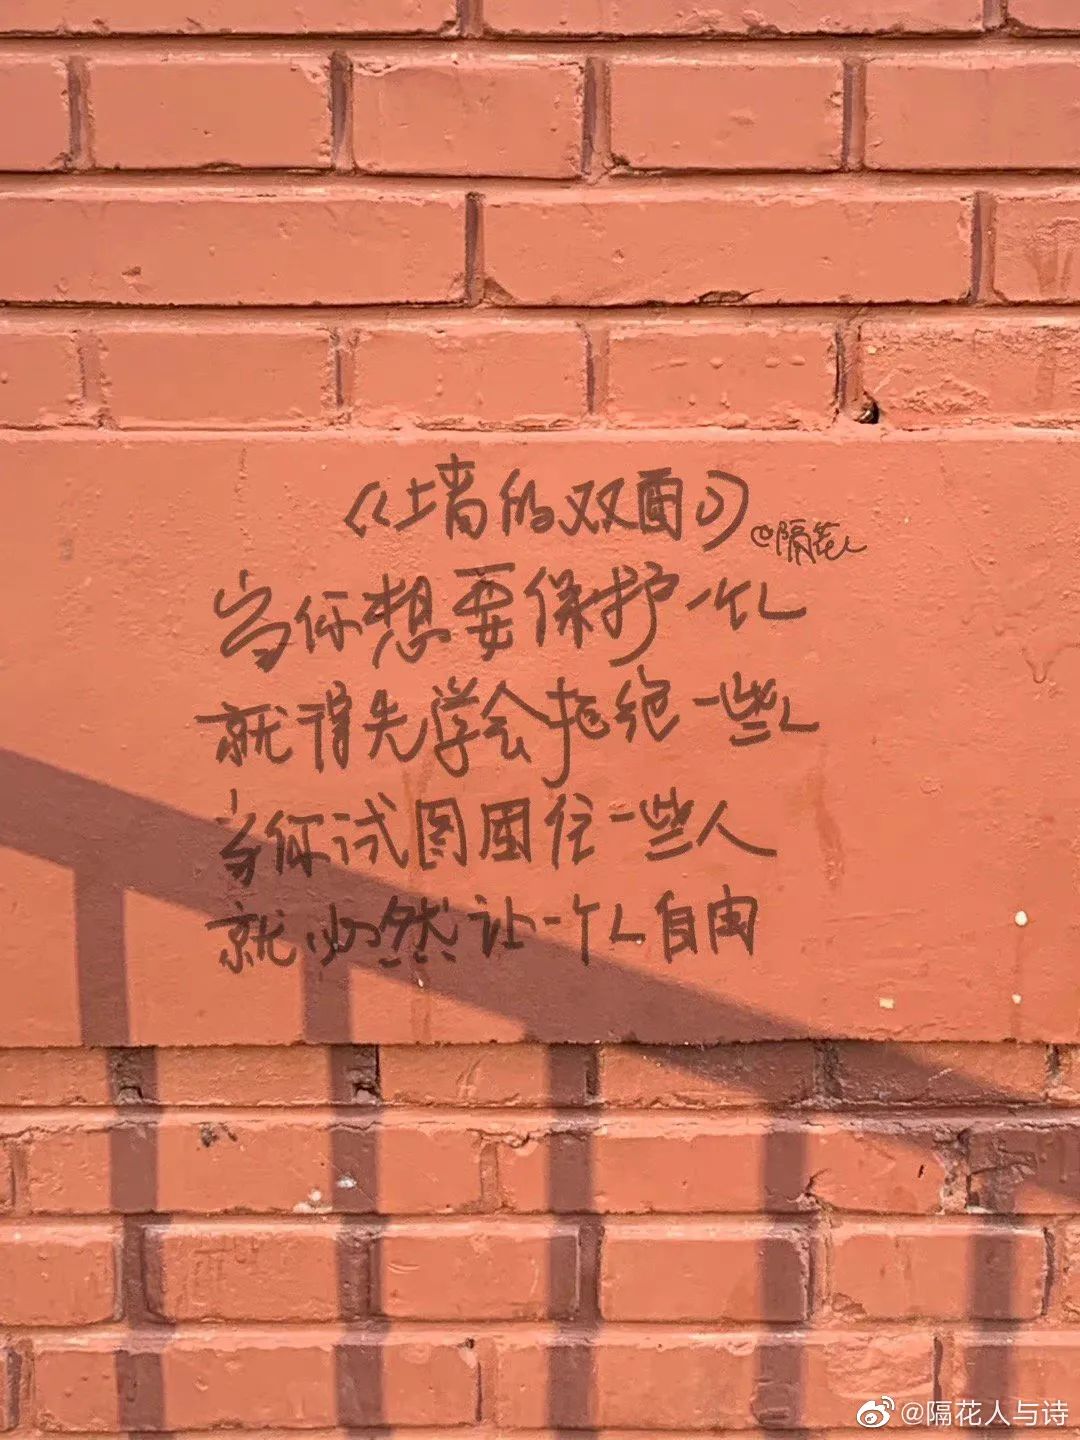 《墙的双面》
@隔花人
当你想要保护一个人
就得先学会拒绝一些人
当你试图困住一些人
就必然让一个人自由
@隔花人与诗